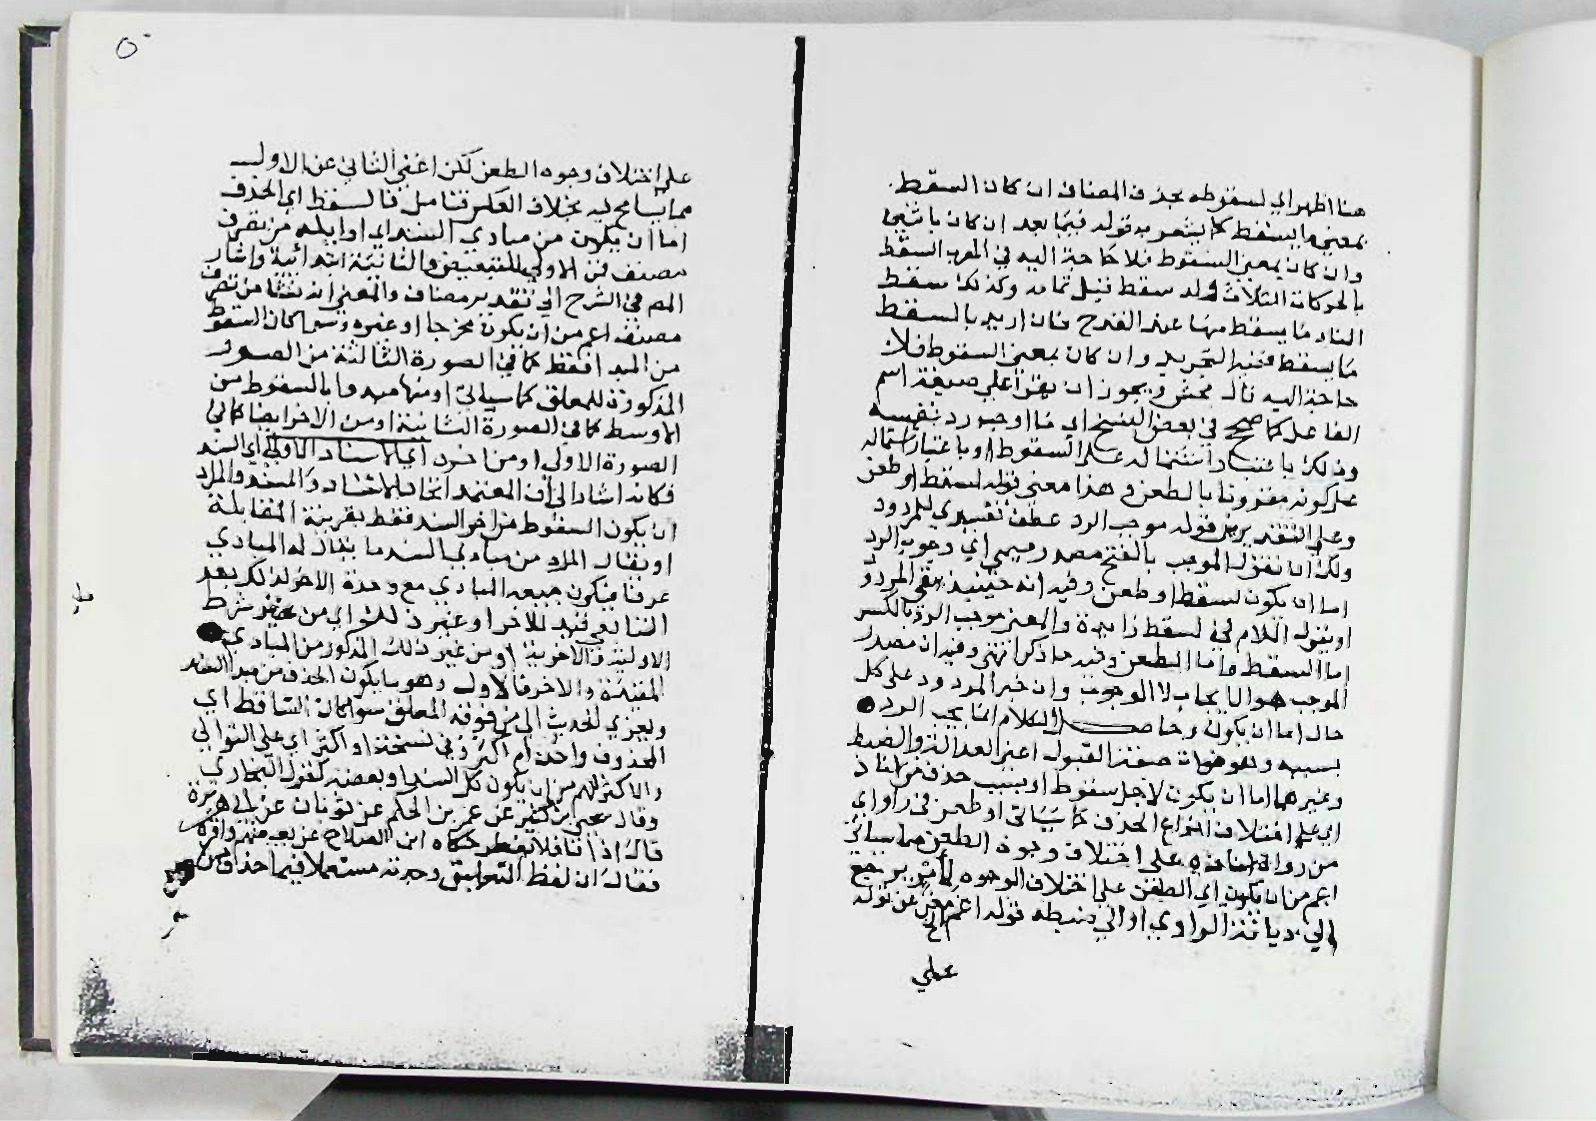 هنا اظهر اي لسقوطه بحذف المضاف ان كان السقط
بمعنى ما يسقط كما يشعر به قوله فيما بعد ان كان باثنين
وان كان بمعنى السقوط فلا حاجة اليه في المغرب السقط
بالحركات الثلاث ولد سقط قبل تمامه وكذلك سقط
النار ما يسقط منها عند القدح فان اريد بالسقط
ما يسقط ففيه التجريد وان كان بمعنى السقوط فلا
حاجة اليه قال محش ويجوز ان يقرأ على صيغة اسم
الفاعل كما صحح في بعض النسخ اي ما اوجب رد نفسه
وذلك باعتبار اشتماله على السقوط او باعتبار اشتماله
على كونه مقرونا بالطعن و هذا معنى قوله لسقط او طعن
وعلى التقديرين قوله موجب الرد عطف تفسيري للمردود
ولك ان تقول الموجب بالفتح مصدر ميمي اي وجوب الرد
اما ان يكون لسقط او طعن وفيه انه حينئذ يبقى المردود
او يقول اللام في لسقط زايدة والمعنى موجب الرد بالكسر
اما السقط واما الطعن وفيه ما ذكر انتهى وفيه ان مصدر
الموجب هو الايجاب لا الوجوب وان خبر المردود على كل
حال اما ان يكون وحاصل الكلام انما يجب الرد
بسببه وهو فوات صفة القبول اعني العدالة والضبط
وغيرهما اما ان يكون لاجل سقوط او بسبب حذف من اسناد
اي على اختلاف انواع الحذف كما سيأتى او طعن في راو اي
من رواة اسناده على اختلاف وجوه الطعن مما سياتي
اعم من ان يكون اي الطعن على اختلاف الوجوه لأمر يرجع
الى ديانة الراوي او الى ضبطه قوله اعم مغن عن قوله
الخ
على
٥
على اختلاف وجوه الطعن لكن اغنى الثاني عن الاول
مما يسامح فيه بخلاف العكس فتامل فالسقط اي الحذف
اما ان يكون من مبادي السند اي اوايله من تصرف
مصنف فمن الاولى للتبعيض والثانية ابتدائية واشار
المص في الشرح الى تقدير مضاف والمعنى انه نشأ من تصرف
مصنف اعم من ان يكون مخرجا او غيره وسوا كان السقوط
من المبدا فقط كما في الصورة الثالثة من الصور
المذكورة للمعلق كما سيأتي او منها مبدوا بالسقوط من
الاوسط كما في الصورة الثانية او من الاخر ايضا كما في
الصورة الاولى او من اخره اي الاسناد الاولى اي السند
فكانه اشار الى ان المعتمد اتحاد الاسناد والسند والمراد
ان يكون السقوط من اخر السند فقط بقرينة المقابلة
او يقال المراد من مبادي السند ما يقال له المبادي
عرفا فيكون جميعه المبادي مع وحدة الاخر لذكر بعد
التابعي قيد للاخر او غير ذلك اي من غير شرط
الاولية والاخرية او من غير ذلك المذكور من المبادي
المقيدة والاخر فالاول وهو ما يكون الحذف من مبدا السند
ويعزي الحديث الى من فوقه المعلق سوا كان الساقط اي
المحذوف واحدا ام اكثر وفي نسخة او اكثر اي على التوالي
والاكثر اعم من ان يكون كل السند او بعضه كقول البخاري
وقال يحيى بن كثير عن عمر بن الحكم عن ثوبان عن ابي هريرة
قال اذا قا فلا يفطر حكاه ابن الصلاح عن بعضهم واقره
فقال ان لفظ التعليق وجدته مستعملا فيما حذف من